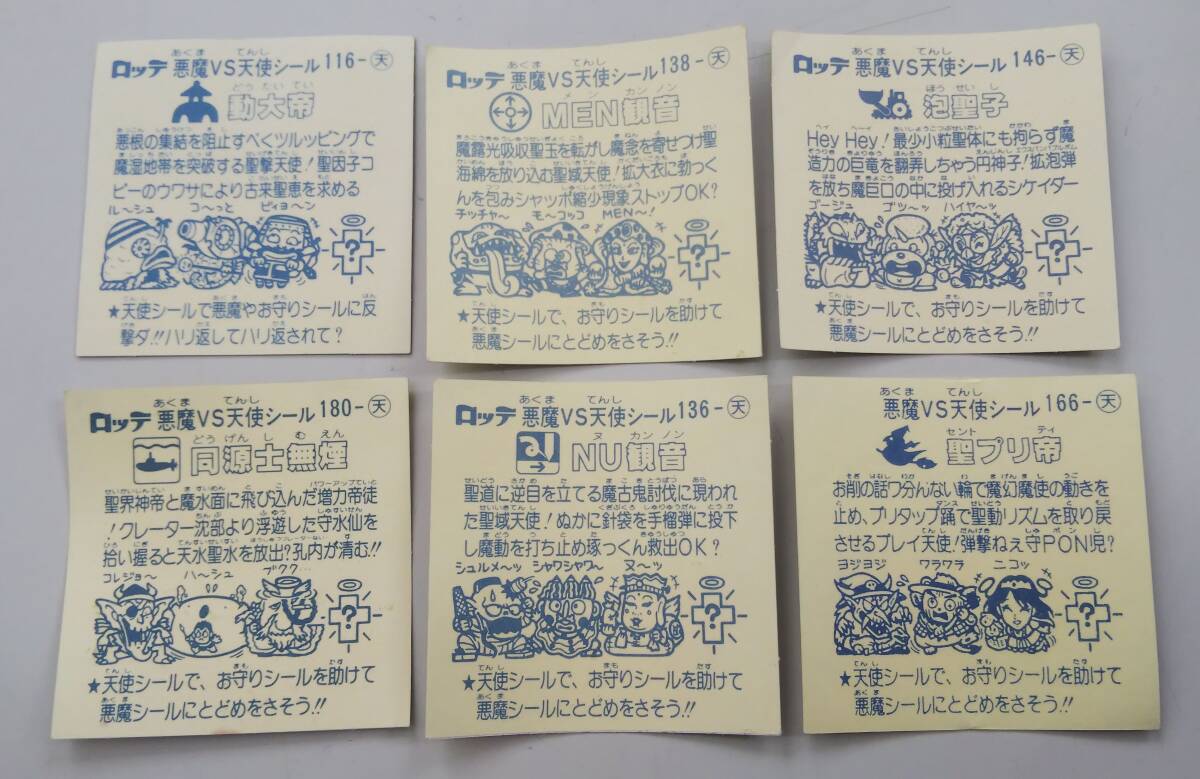 あくま てんし
ロッテ 悪魔VS天使シール 116-天
どうたいてい
動大帝
悪根の集結を阻止すべくツルッピングで
魔湿地帯を突破する聖撃天使!聖因子コ
ピーのウワサにより古来聖恵を求める
ル〜シュ コ〜っと ピィョ〜ン
?
★天使シールで悪魔やお守りシールに反
撃ダ!!ハリ返してハリ返されて?
あくま てんし
ロッテ 悪魔VS天使シール 138-天
メン カンノン
MEN観音
魔露光吸収聖玉を転がし魔念を寄せつけ聖
海綿を放り込む聖域天使!拡大衣に勃っく
んを包みシャッポ縮少現象ストップOK?
チッチャ〜 モ〜コッコ MEN〜!
?
★天使シールで、お守りシールを助けて
悪魔シールにとどめをさそう!!
あくま てんし
ロッテ 悪魔VS天使シール 146-天
ほうせいし
泡聖子
Hey Hey!最少小粒聖体にも拘らず魔
造力の巨竜を翻弄しちゃう円神子!拡泡弾
を放ち魔巨口の中に投げ入れるシケイダー
ゴージュ ゴッ〜ッ ハイヤ〜ッ
?
★天使シールで、お守りシールを助けて
悪魔シールにとどめをさそう!!
あくま てんし
ロッテ 悪魔VS天使シール 180-天
どうげんしむえん
同源士無煙
聖界神帝と魔水面に飛び込んだ増力帝徒
!クレーター沈部より浮遊した守水仙を
拾い握ると天水聖水を放出?孔内が清む!!
コレジョ〜 ハ〜シュ ブクク…
?
★天使シールで、お守りシールを助けて
悪魔シールにとどめをさそう!!
あくま てんし
ロッテ 悪魔VS天使シール 136-天
ヌ カンノン
NU観音
聖道に逆目を立てる魔古鬼討伐に現われ
た聖域天使!ぬかに針袋を手榴弾に投下
し魔動を打ち止め琢っくん救出OK?
シュルメ〜ッ シャワシャワ〜 ヌ〜ッ
?
★天使シールで、お守りシールを助けて
悪魔シールにとどめをさそう!!
あくま てんし
悪魔VS天使シール 166-天
セント ティ
聖プリ帝
お削の話ワ分んない輪で魔幻魔使の動きを
止め、プリタップ踊で聖動リズムを取り戻
させるプレイ天使!弾撃ねぇ守PON児?
ヨジヨジ ワラワラ ニコッ
?
★天使シールで、お守りシールを助けて
悪魔シールにとどめをさそう!!